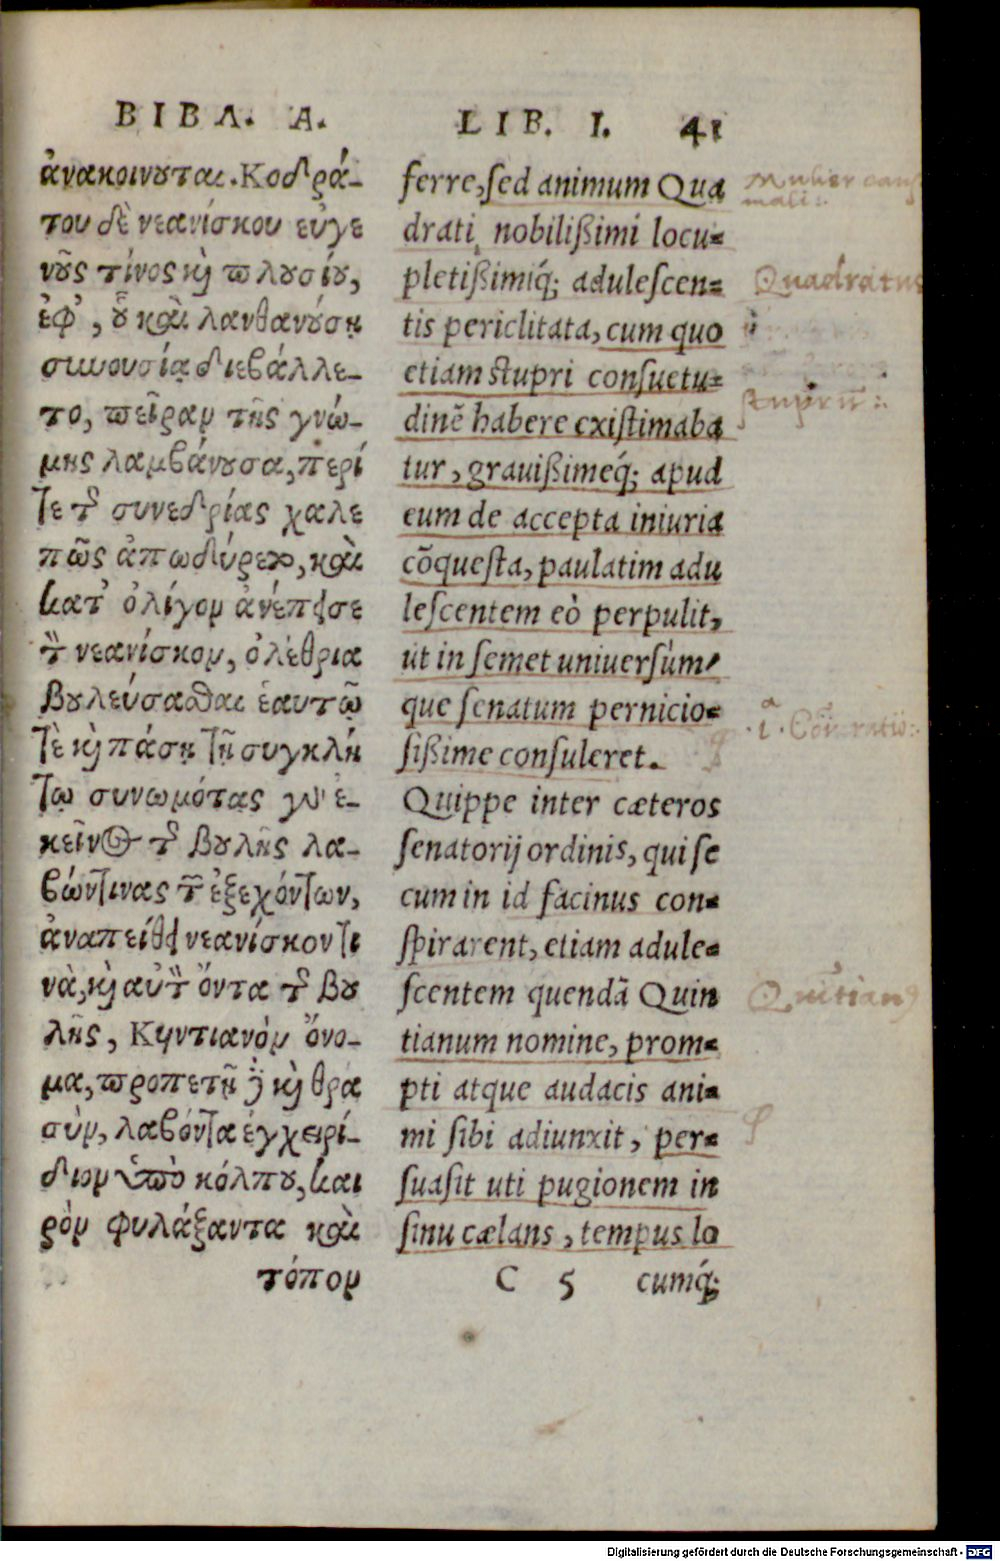 ΒΙΒΛ. Α.
ἀνακοινοῦται. Κοδρά-
του δὲ νεανίσκου εὐγε
νοῦς τίνος καὶ πλουσίου,
ἐφ᾽, ᾧ καὶ λανθανούσῃ
συνουσίᾳ διεβάλλε-
το, πεῖραν τῆς γνώ-
μης λαμβάνουσα, περί
τε τῆς συνεδρίας χαλε
πῶς ἀπωδύρετο, καὶ
κατ᾽ ὀλίγον ἀνέπεισε
τὸν νεανίσκον, ὀλέθρια
βουλεύσασθαι ἑαυτῷ
τὲ καὶ πάσῃ τῇ συγκλή
τῳ συνωμότας γοῦν ἐ-
κεῖνος τῆς βουλῆς λα-
βών τινας τῶν ἐξεχόντων,
ἀναπείθει νεανίσκον τι
νὰ, καὶ αὐτὸν ὄντα τῆς βου
λῆς, Κυντιανὸν ὄνο-
μα, προπετῆ δὲ καὶ θρα
σὺν, λαβόντα ἐγχειρί-
διον ὑπὸ κόλπου, και
ρὸν φυλάξαντα καὶ
τόπον
LIB. I. 41
ferre, sed animum Qua
drati, nobilißimi locu-
pletißimiq́; adulescen-
tis periclitata, cum quo
etiam stupri consuetu-
dinẽ habere existimaba
tur, grauißimeq́; apud
eum de accepta iniuria
cõquesta, paulatim adu
lescentem eò perpulit,
ut in semet uniuersúm-
que senatum pernicio-
sißime consuleret.
Quippe inter cæteros
senatorij ordinis, qui se
cum in id facinus con-
spirarent, etiam adule-
scentem quendã Quin
tianum nomine, prom-
pti atque audacis ani-
mi sibi adiunxit, per-
suasit uti pugionem in
sinu cælans, tempus lo
C 5 cumq́;
Mulier caus
mali:
Quadratus
stuprũ:
Quĩtianꝰ
Digitalisierung gefördert durch die Deutsche Forschungsgemeinschaft - DFG